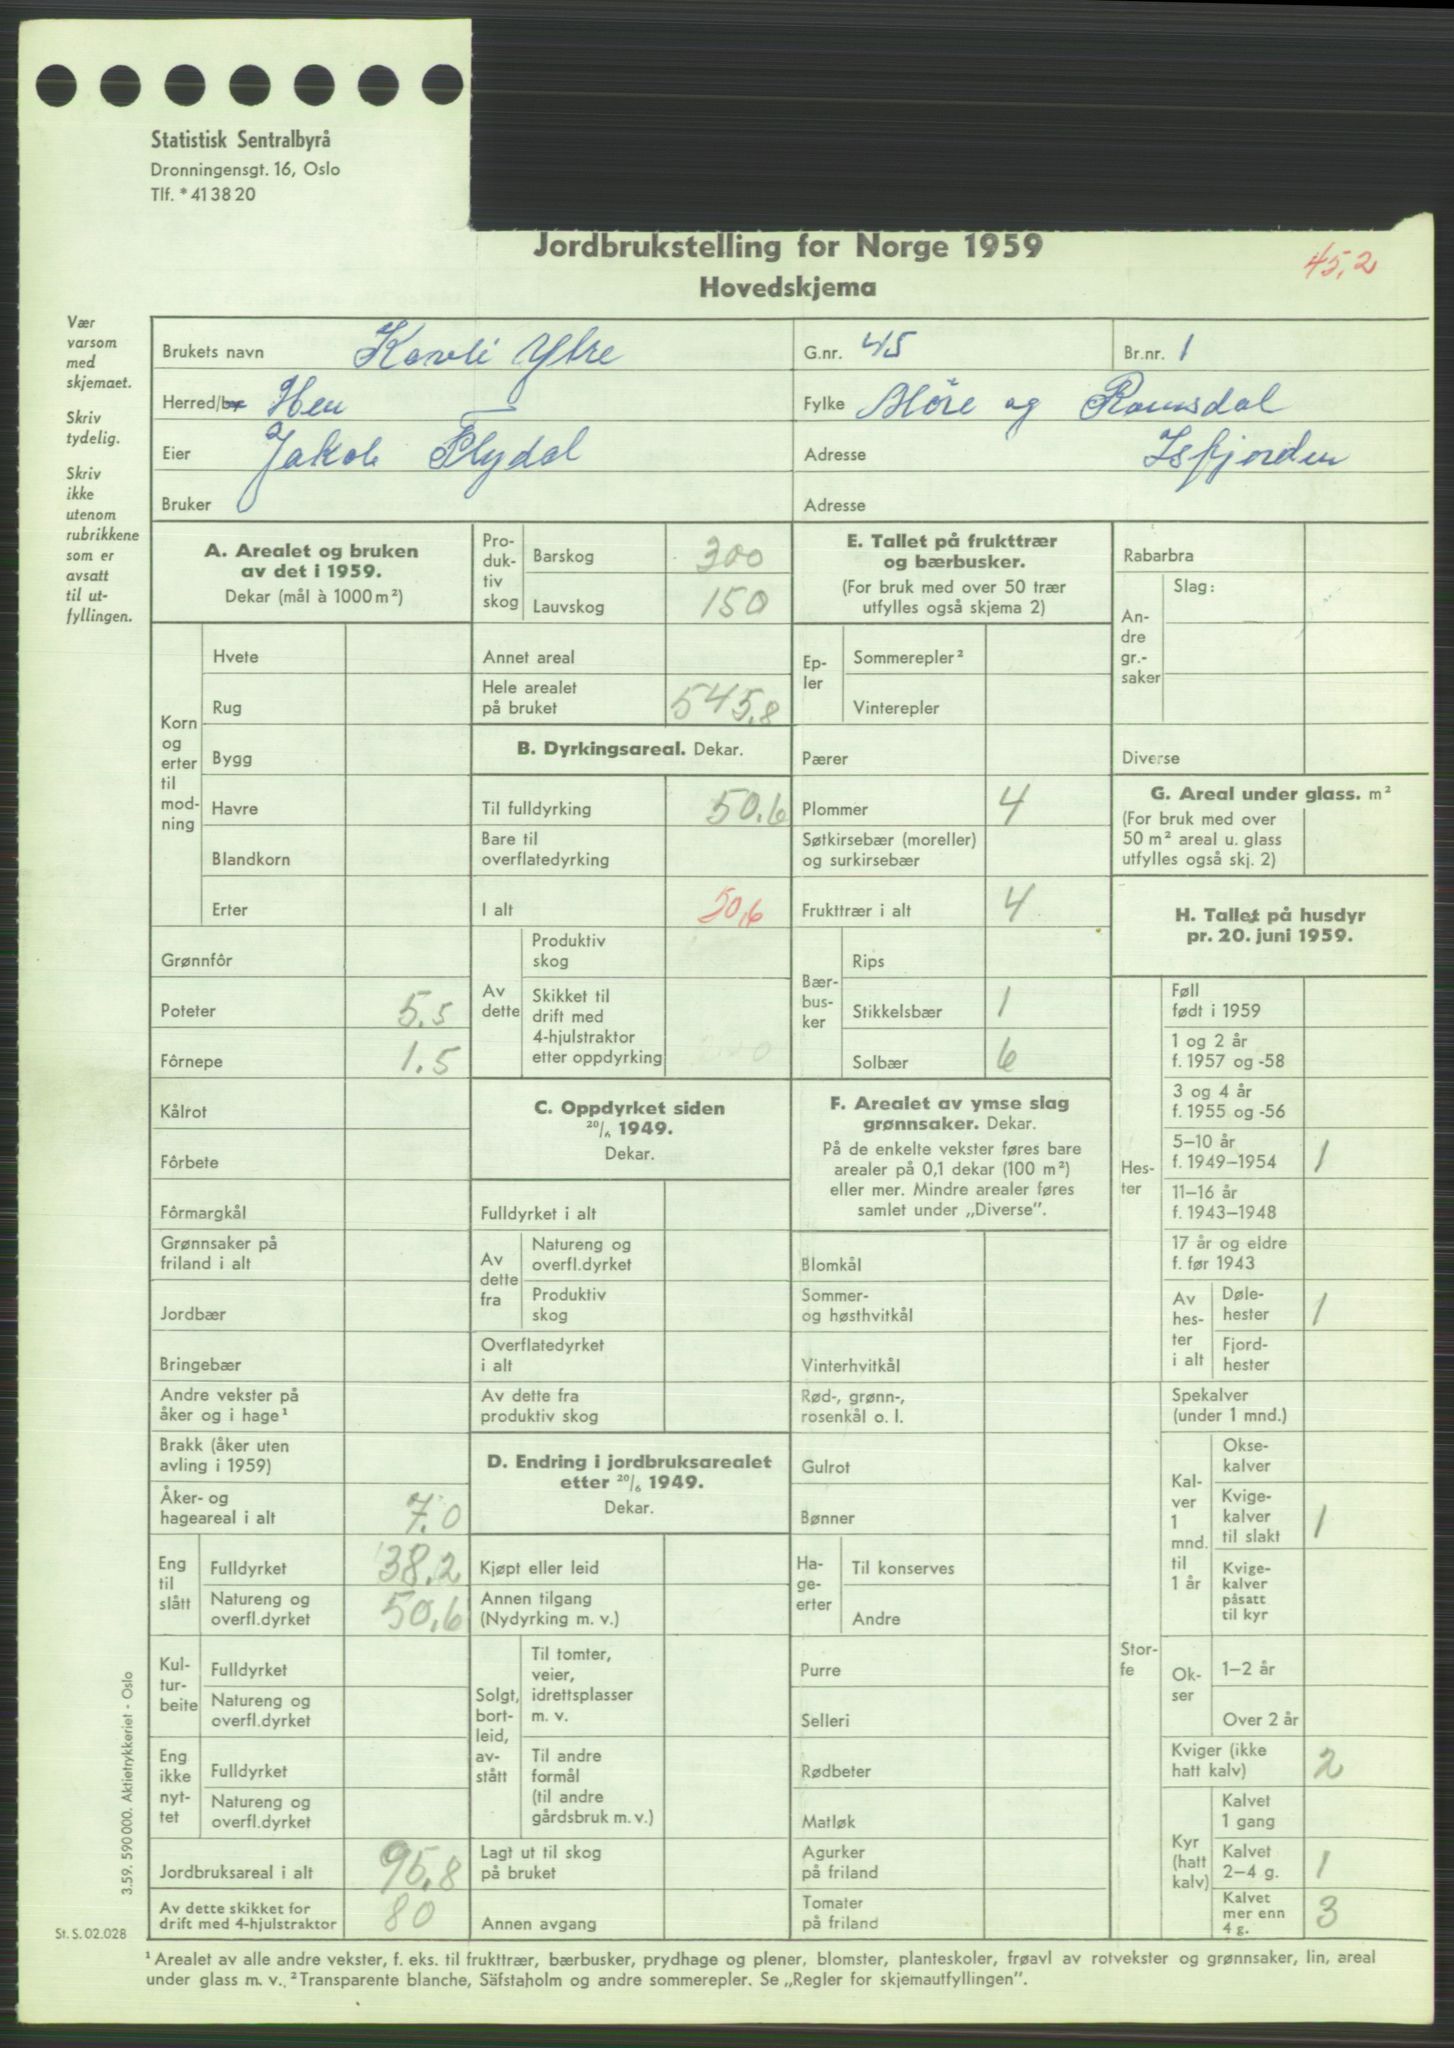 Statistisk Sentralbyrå
Dronningensgt. 16, Oslo
Tlf. *41 38 20
Jordbrukstelling for Norge 1959
Hovedskjema
45,2
Vær
varsom
med
skjemaet.
Skriv
tydelig.
Skriv
ikke
utenom
rubrikkene
som er
avsatt
til ut-
fyllingen.
Brukets navn Kavli Ytre G.nr. 45 Br.nr. 1
Herred/by Hen Fylke Møre og Romsdal
Eier Jakob Flydal Adresse Isfjorden
Bruker Adresse
A. Arealet og bruken
av det i 1959.
Dekar (mål à 1000 m²)
Korn
og
erter
til
mod-
ning
Hvete
Rug
Bygg
Havre
Blandkorn
Erter
Grønnfôr
Poteter 5.5
Fôrnepe 1.5
Kålrot
Fôrbete
Fôrmargkål
Grønnsaker på
friland i alt
Jordbær
Bringebær
Andre vekster på
åker og i hage¹
Brakk (åker uten
avling i 1959)
Åker- og
hageareal i alt 7.0
Eng
til
slått
Fulldyrket 38.2
Natureng og
overfl.dyrket 50,6
Kul-
tur-
beite
Fulldyrket
Natureng og
overfl.dyrket
Eng
ikke
nyt-
tet
Fulldyrket
Natureng og
overfl.dyrket
Jordbruksareal i alt 95,8
Av dette skikket for
drift med 4-hjulstraktor 80
Pro-
duk-
tiv
skog
Barskog 300
Lauvskog 150
Annet areal
Hele arealet
på bruket 545,8
B. Dyrkingsareal. Dekar.
Til fulldyrking 50,6
Bare til
overflatedyrking
I alt 50,6
Av
dette
Produktiv
skog
Skikket til
drift med
4-hjulstraktor
etter oppdyrking
C. Oppdyrket siden
20/6 1949.
Dekar.
Fulldyrket i alt
Av
dette
fra
Natureng og
overfl.dyrket
Produktiv
skog
Overflatedyrket
i alt
Av dette fra
produktiv skog
D. Endring i jordbruksarealet
etter 20/6 1949.
Dekar.
Kjøpt eller leid
Annen tilgang
(Nydyrking m. v.)
Solgt,
bort-
leid,
av-
stått
Til tomter,
veier,
idrettsplasser
m. v.
Til andre
formål
(til andre
gårdsbruk m. v.)
Lagt ut til skog
på bruket
Annen avgang
E. Tallet på frukttrær
og bærbusker.
(For bruk med over 50 trær
utfylles også skjema 2)
Ep-
ler
Sommerepler²
Vinterepler
Pærer
Plommer 4
Søtkirsebær (moreller)
og surkirsebær
Frukttrær i alt 4
Bær-
bus-
ker
Rips
Stikkelsbær 1
Solbær 6
F. Arealet av ymse slag
grønnsaker. Dekar.
På de enkelte vekster føres bare
arealer på 0,1 dekar (100 m²)
eller mer. Mindre arealer føres
samlet under „Diverse”.
Blomkål
Sommer-
og høsthvitkål
Vinterhvitkål
Rød-, grønn-,
rosenkål o. l.
Gulrot
Bønner
Ha-
ge-
erter
Til konserves
Andre
Purre
Selleri
Rødbeter
Matløk
Agurker
på friland
Tomater
på friland
Rabarbra
An-
dre
gr.-
saker
Slag:
Diverse
G. Areal under glass. m²
(For bruk med over
50 m² areal u. glass
utfylles også skj. 2)
H. Tallet på husdyr
pr. 20. juni 1959.
Hes-
ter
Føll
født i 1959
1 og 2 år
f. 1957 og -58
3 og 4 år
f. 1955 og -56
5–10 år
f. 1949–1954 1
11–16 år
f. 1943–1948
17 år og eldre
f. før 1943
Av
hes-
ter
i alt
Døle-
hester 1
Fjord-
hester
Stor-
fe
Spekalver
(under 1 mnd.)
Kal-
ver
1
mnd.
til
1 år
Okse-
kalver
Kvige-
kalver
til slakt 1
Kvige-
kalver
påsatt
til kyr
Ok-
ser
1–2 år
Over 2 år
Kviger (ikke
hatt kalv) 2
Kyr
(hatt
kalv)
Kalvet
1 gang
Kalvet
2–4 g. 1
Kalvet
mer enn
4 g. 3
3.59. 590 000. Aktietrykkeriet - Oslo
St. S. 02.028
¹ Arealet av alle andre vekster, f. eks. til frukttrær, bærbusker, prydhage og plener, blomster, planteskoler, frøavl av rotvekster og grønnsaker, lin, areal
under glass m. v. ² Transparente blanche, Säfstaholm og andre sommerepler. Se „Regler for skjemautfyllingen”.